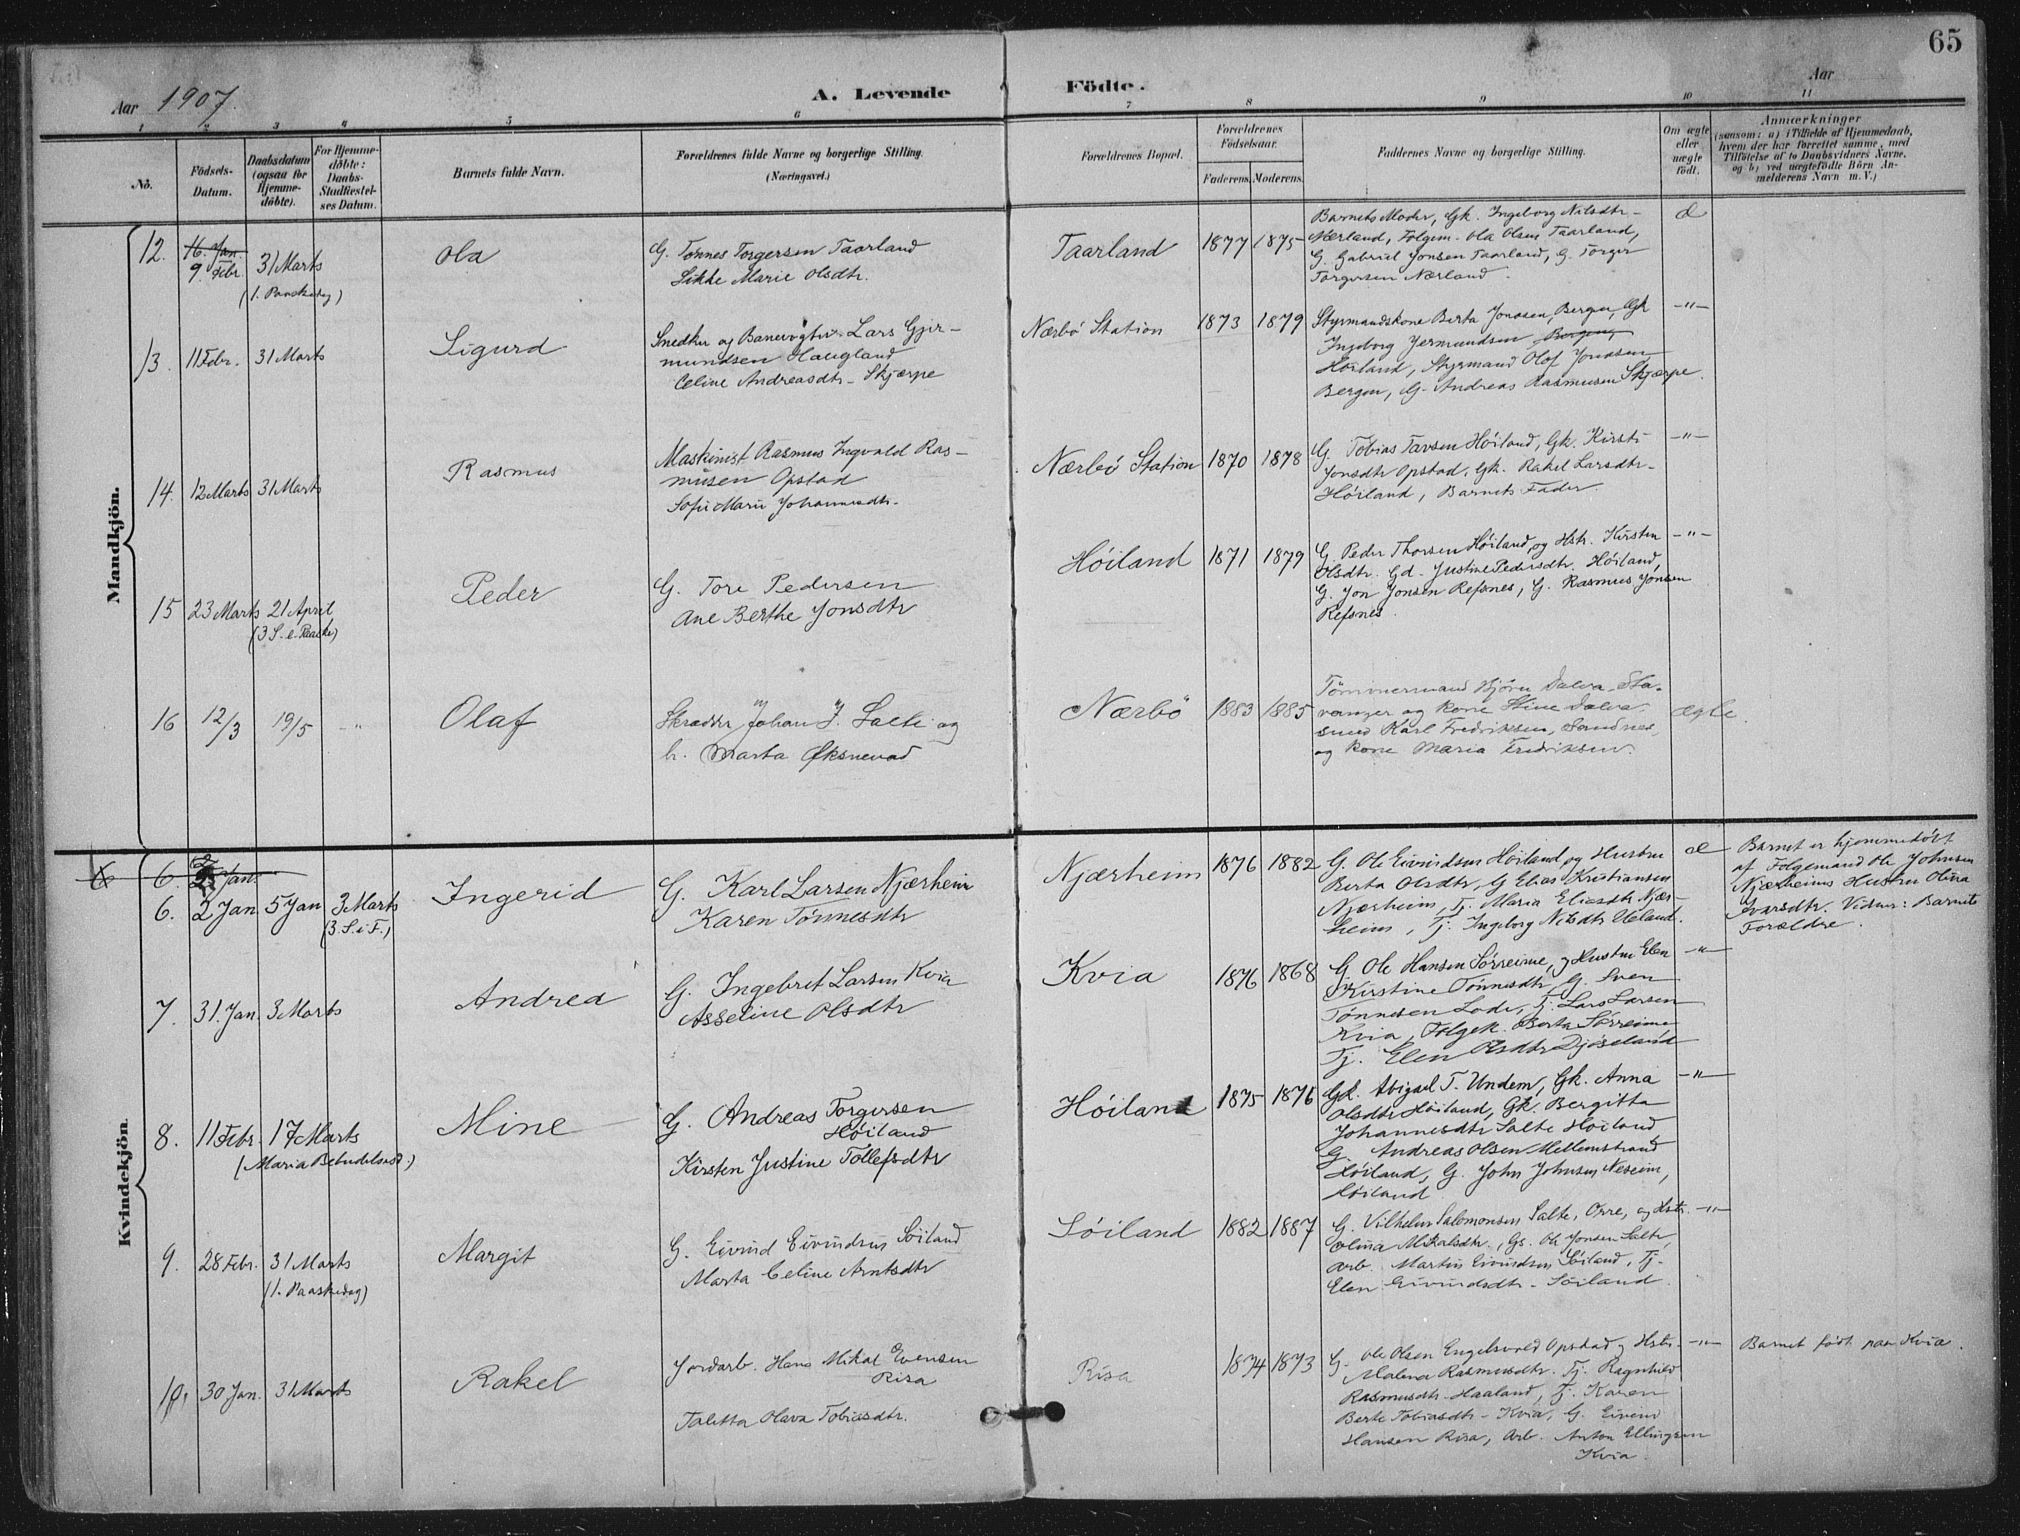 65
Aar 1907.
A. Levende Födte.
Aar
1 2 3 4 5 6 7 8 9 10 11
No.
Födsels-Datum.
Daabsdatum (ogsaa for Hjemme-döbte).
For Hjemme-döbte: Daabs-Stadfæstel-ses Datum.
Barnets fulde Navn.
Forældrenes fulde Navne og borgerlige Stilling.
(Næringsvei.)
Forældrenes Bopæl.
Forældrenes Födselsaar.
Faderens. Moderens.
Faddernes Navne og borgerlige Stilling.
Om ægte eller uægte födt.
Anmærkninger
(saasom: a) i Tilfælde af Hjemmedaab,
hvem der har forrettet samme, med
Tilföielse af to Daabsvidners Navne,
og b) ved uægtefödte Börn An-
melderens Navn m. V.)
Mandkjön.
12. 16. Jan. 9. Febr. 31 Marts (1. Paaskedag)
Ola
G. Tønnes Torgersen Taarland
Sikke Marie Olsdtr.
Taarland 1877 1875
Barnets Moder, Gk. Ingeborg Nilsdtr -
Nærland, Følgem. Ola Olsen Taarland,
G. Gabriel Jonsen Taarland, G. Torger
Torgersen Nærland.
æ
13. 11 Febr. 31 Marts
Sigurd
Snedker og Banevogter Lars Gjer-
mundsen Haugland
Celine Andreasdtr. Skjærpe
Nærbö Station 1873 1879
Styrmandskone Berta Jonasen, Bergen, Gk
Ingeborg Jermundsen Bergen,
Höiland, Styrmand Olaf Jonasen
Bergen, G. Andreas Rasmussen Skjærpe.
-"-
14. 12 Marts 31 Marts
Rasmus
Maskinist Rasmus Ingvald Ras-
musen Opstad
Sofie Marie Johannesdtr.
Nærbö Station 1870 1878
G. Tobias Tarsen Höiland, Gk. Kirsti
Jonsdtr Opstad, Gk. Rakel Larsdtr-
Höiland, Barnets Fader.
-"-
15 23 Marts 21 April (3 S. e. Paaske)
Peder
G. Tore Pedersen
Ane Berthe Jonsdtr
Höiland 1871 1879
G. Peder Thorsen Höiland, og Hstr. Kirsten
Olsdtr. Gd. Justine Pedersdtr. Höiland,
G. Jon Jonsen Refsnes, G. Rasmus Jonsen
Refsnes.
-"-
16 12/3 19/5 -"-
Olaf
Skrædder Johan J. Salte og
h. Marta Øksnevad
Nærbö 1883 1885
Tömmermand Björn Dalva, Sta-
vanger og kone Stine Dalva.
smed Karl Fredriksen, Sandnes,
og kone Maria Fredriksen.
ægte.
Kvindekjön.
6. 2 Jan.
6. 2 Jan 5 Jan 3 Marts (3. S. i F.)
Ingerid
G. Karl Larsen Njærheim
Karen Tönnesdtr
Njærheim 1876 1882
G. Ole Eivindsen Höiland og Hustru
Berta Olsdtr, G Elias Kristiansen
Njærheim, Tj. Maria Eliasdtr Njær-
heim, Tj. Ingeborg Nilsdtr Ueland.
æ
Barnet er hjemmedöbt
af Følgemand Ole Johnsen
Njærheims Hustru Olina
Ivarsdtr. Vidner: Barnets
Forældre.
7. 31. Jan. 3 Marts
Andrea
G. Ingebret Larsen Kvia
Asseline Olsdtr
Kvia 1876 1868
G. Ole Hansen Sörreime, og Hustru Elen
Kirstine Tönnesdtr, G. Sven
Tönnesen Lode, Tj. Lars Larsen
Kvia, Følgek. Berta Sörreime
Tj. Elen Olsdtr Djöseland
-"-
8. 11 Febr. 17 Marts (Maria Bebudelsesd.)
Mine
G. Andreas Torgersen
Höiland
Kirsten Justine Tollefsdtr
Höiland 1875 1876
Gd. Abigael T. Undem, Gk. Anna
Olsdtr Höiland, Gk. Bergitta
Johannesdtr Salte Höiland
G. Andreas Olsen Mellemstrand
Höiland, G. John Johnsen Neseim,
Höiland
-"-
9. 28 Febr. 31 Marts (1. Paaskedag)
Margit
G. Eivind Eivindsen Söiland
Marta Celine Arntsdtr
Söiland 1882 1887
G. Vilhelm Salomonsen Salte, Orre, og Hstr.
Olina Mikalsdtr., Gs. Ole Jonsen Salte,
Arb. Martin Eivindsen Söiland, Tj.
Elen Eivindsdtr Söiland.
-"-
10. 30 Jan. 31 Marts
Rakel
Jordarb. Hans Mikal Evensen
Risa
Taletta Olava Tobiasdtr.
Risa 1874 1873
G. Ole Olsen Engelsvold Opstad, og Hstr.
Malena Rasmusdtr. Tj. Ragnhild
Rasmusdtr Haaland, Tj. Karen
Berte Tobiasdtr - Kvia, G. Eivend
Hansen Risa, Arb. Anton Ellingsen
Kvia.
-"-
Barnet född paa Kvia.